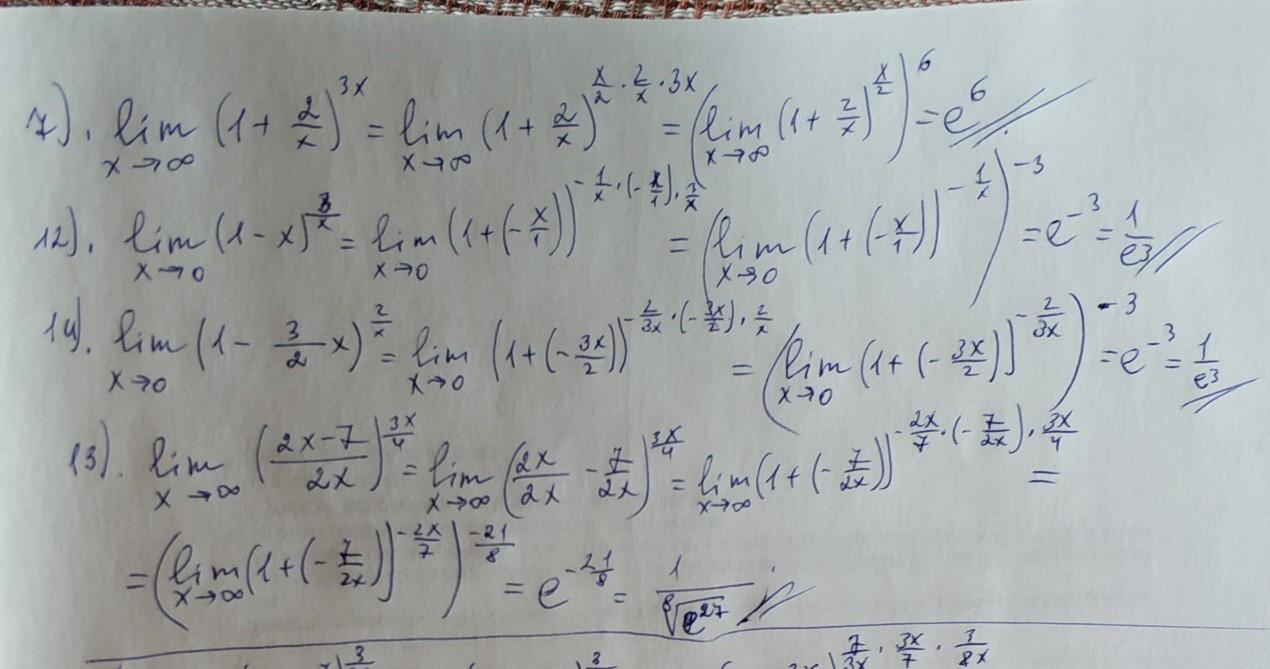 7). lim x→∞ (1 + 2/x)^(3x) = lim x→∞ (1 + 2/x)^(x/2 · 2/x · 3x) = (lim x→∞ (1 + 2/x)^(x/2))^6 = e^6
12). lim x→0 (1 - x)^(3/x) = lim x→0 (1 + (-x/1))^(-1/x · (-x/1) · 3/x) = (lim x→0 (1 + (-x/1))^(-1/x))^(-3) = e^(-3) = 1/e^3
14). lim x→0 (1 - 3/2 x)^(2/x) = lim x→0 (1 + (-3x/2))^(-2/3x · (-3x/2) · 2/x) = (lim x→0 (1 + (-3x/2))^(-2/3x))^(-3) = e^(-3) = 1/e^3
13). lim x→∞ ((2x-7)/2x)^(3x/4) = lim x→∞ (2x/2x - 7/2x)^(3x/4) = lim x→∞ (1 + (-7/2x))^(-2x/7 · (-7/2x) · 3x/4) =
= (lim x→∞ (1 + (-7/2x))^(-2x/7))^(-21/8) = e^(-21/8) = 1/⁸√(e^27)
7/3x · 3x/7 · 3/8x